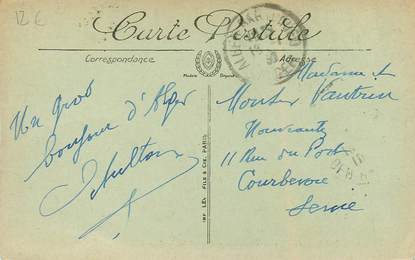 12€
Carte Postale
Correspondance
Adresse
Modèle Déposé
Un gros
bonjour d'Alger
Madame &
Monsieur Vautrin
Nouveautés
11 Rue du Port
Courbevoie
Seine
IMP. LÉVY FILS & CIE, PARIS